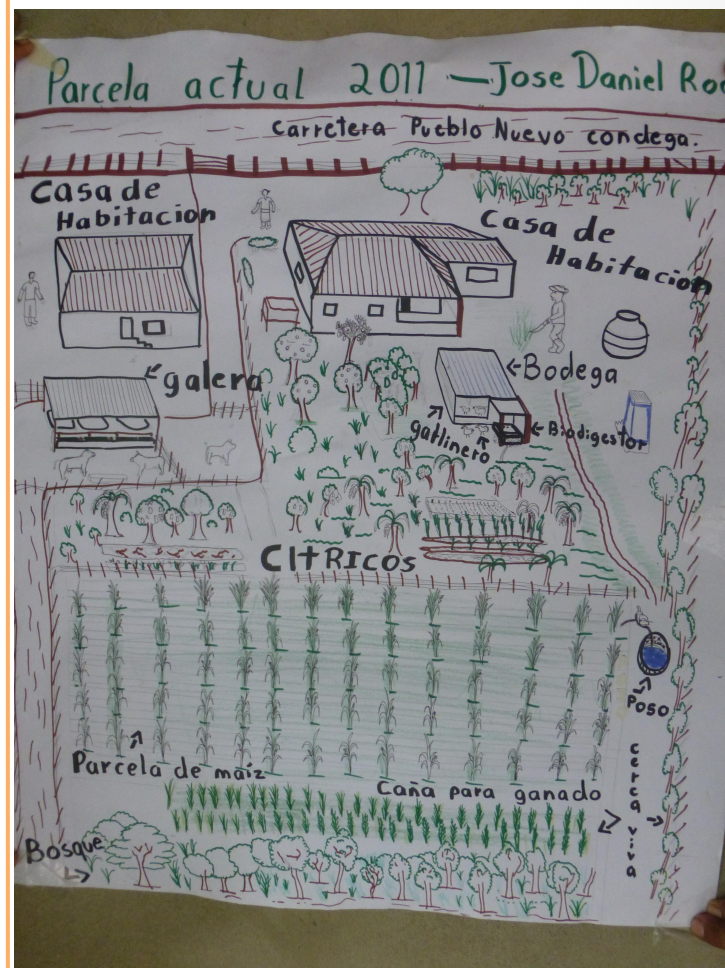 Parcela actual 2011 — Jose Daniel
Carretera Pueblo Nuevo condega.
Casa de
Habitacion
Casa de
Habitacion
galera
Bodega
gallinero
Biodigestor
CITRICOS
Poso
Parcela de maíz
Caña para ganado
cerca viva
Bosque